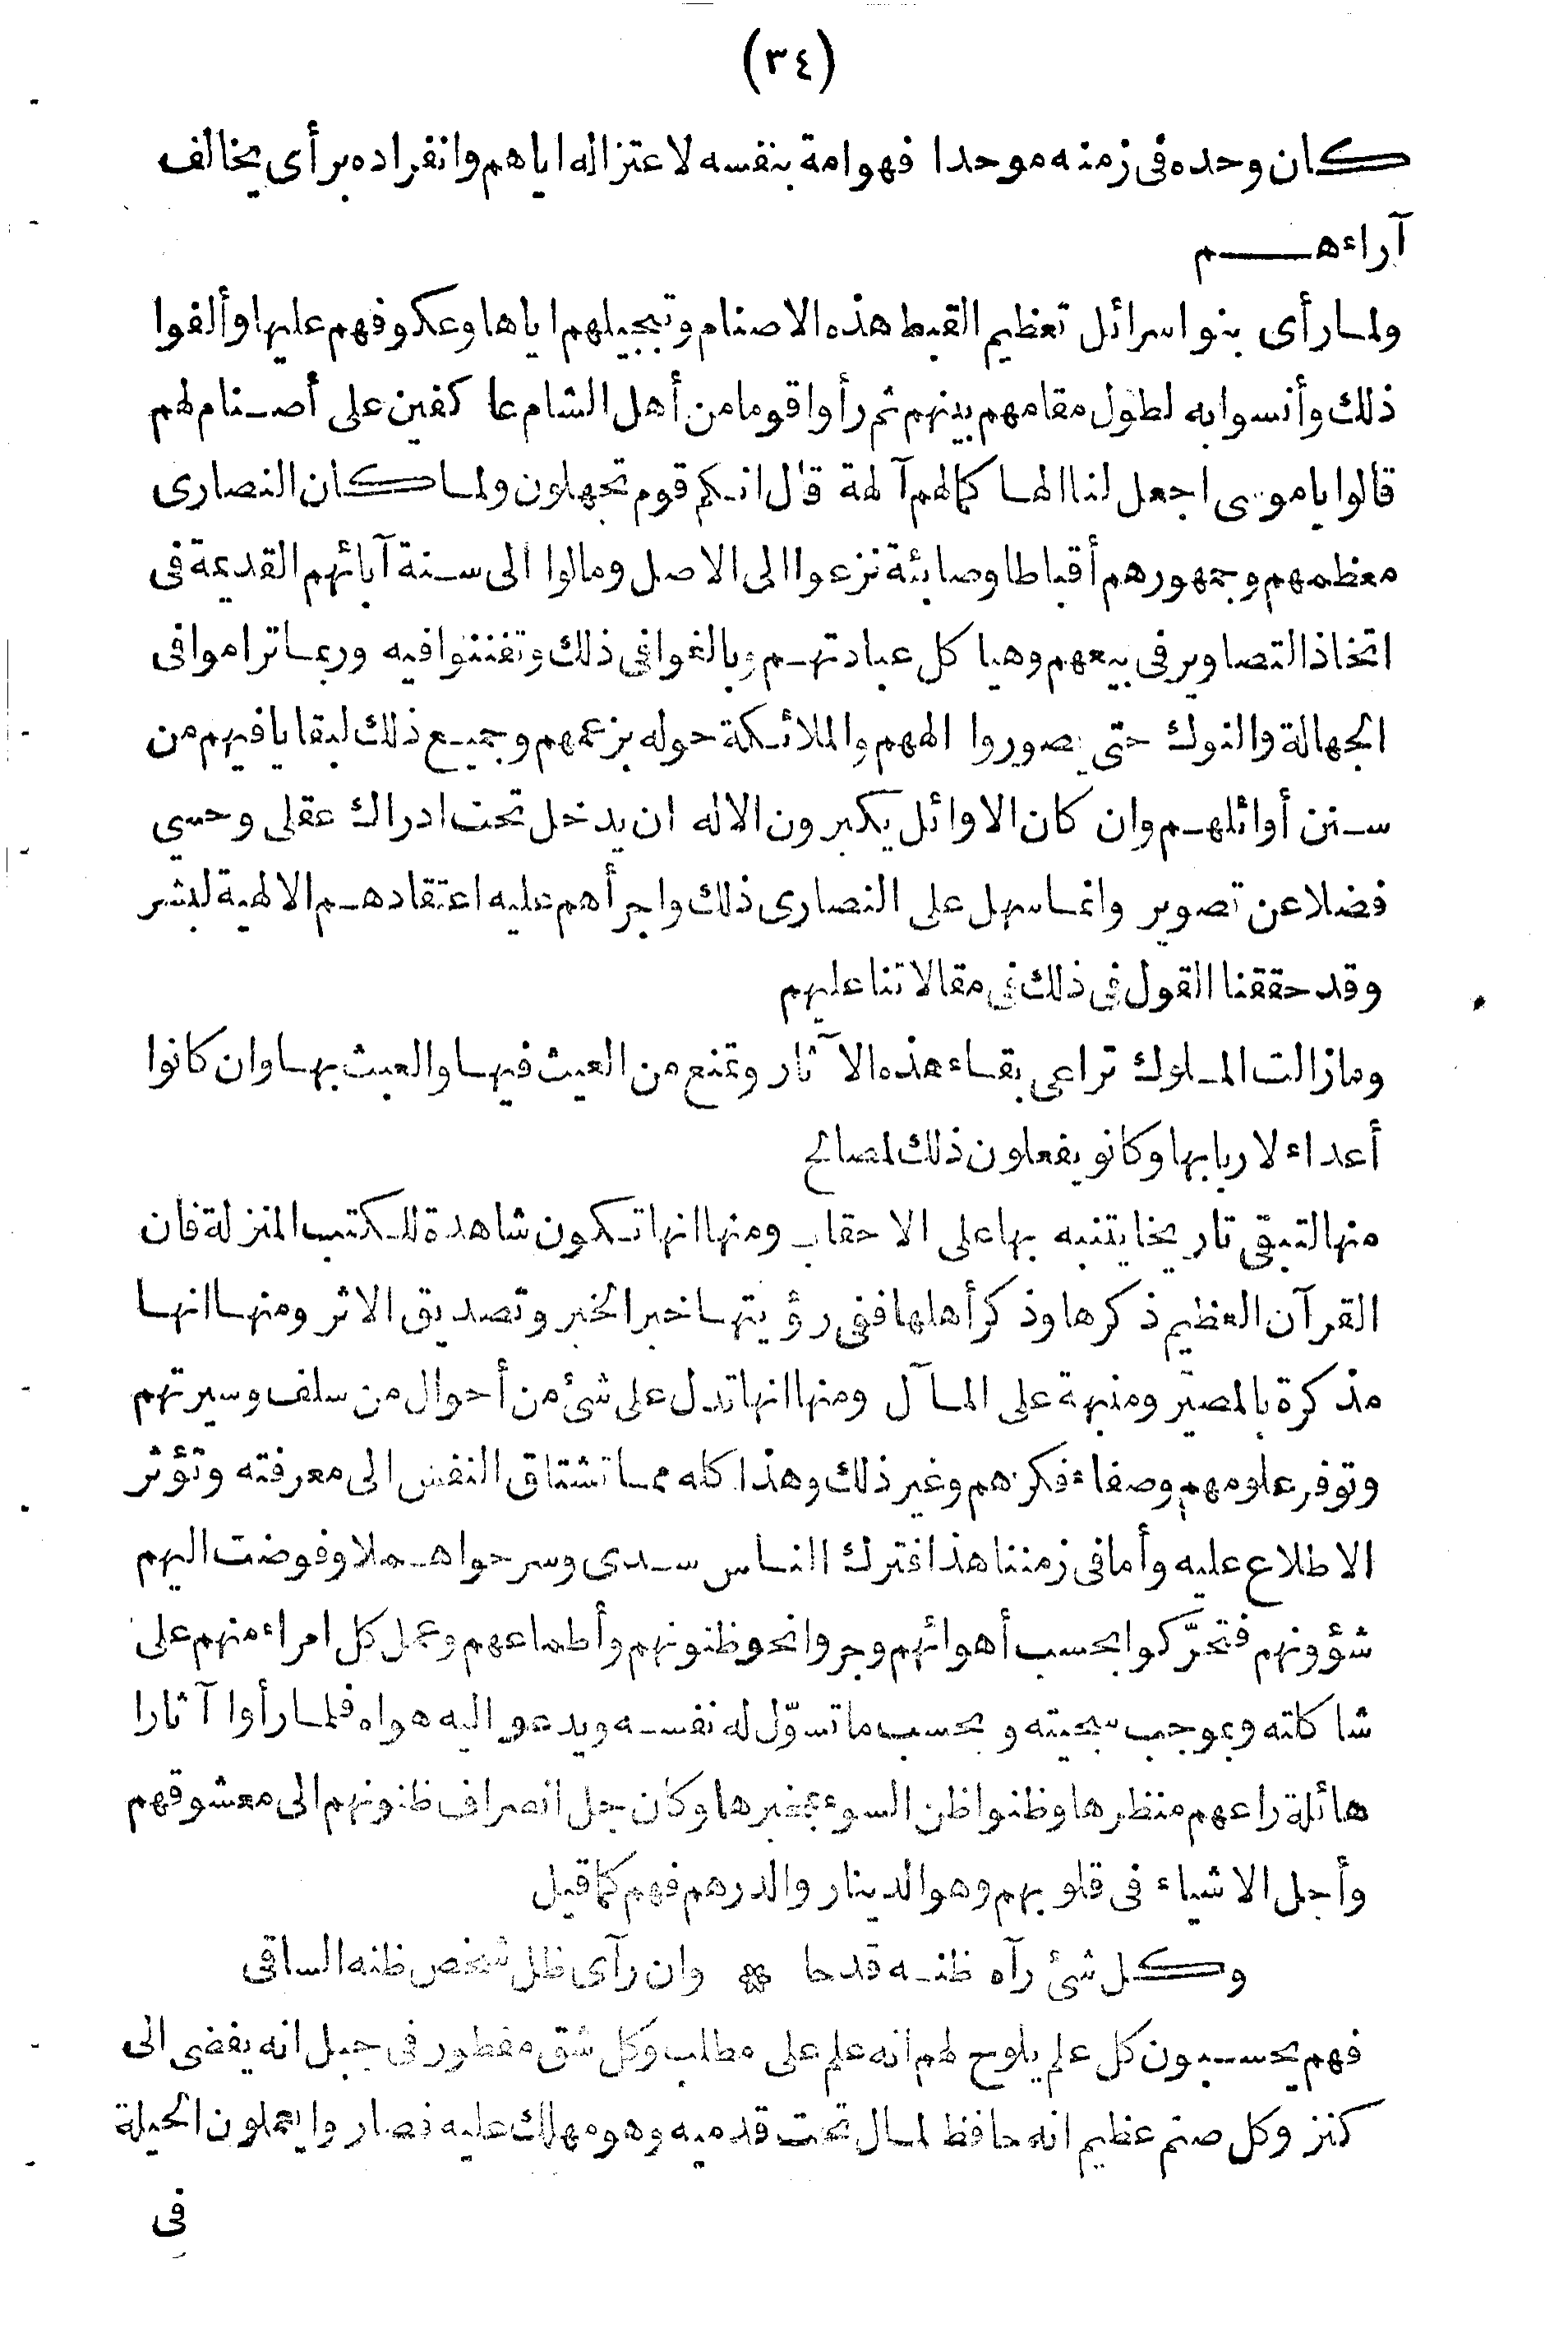 (٣٤)
كان وحده فى زمنه موحدا فهو امة بنفسه لاعتزاله اياهم وانفراده برأى يخالف
آراءهم
ولما رأى بنو اسرائل تعظيم القبط هذه الاصنام وتبجيلهم اياها وعكوفهم عليها وألفوا
ذلك وأنسوا به لطول مقامهم بينهم ثم رأوا قوما من أهل الشام عا كفين على أصنام لهم
قالوا يا موسى اجعل لنا الها كما لهم آلهة قال انكم قوم تجهلون ولما كان النصارى
معظمهم وجمهورهم أقباطا وصابئة نزعوا الى الاصل ومالوا الى سنة آبائهم القديمة فى
اتخاذ التصاوير فى بيعهم وهيا كل عبادتهم وبالغوا فى ذلك وتفننوا فيه وربما تراموا فى
الجهالة والنوك حتى يصوروا الههم والملائكة حوله بزعمهم وجميع ذلك لبقايا فيهم من
سنن أوائلهم وان كان الاوائل يكبرون الاله ان يدخل تحت ادراك عقلى وحسي
فضلا عن تصوير وانما سهل على النصارى ذلك واجرأهم عليه اعتقادهم الالهية لبشر
وقد حققنا القول فى ذلك فى مقالاتنا عليهم
ومازالت الملوك تراعى بقاء هذه الآثار وتمنع من العيث فيها والعبث بها وان كانوا
أعداء لاربابها وكانو يفعلون ذلك لمصالح
منها لتبقى تاريخا يتنبه بها على الاحقاب ومنها انها تكون شاهدة للكتب المنزلة فان
القرآن العظيم ذكرها وذكر أهلها ففى رؤيتها خبر الخبر وتصديق الاثر ومنها انها
مذكرة بالمصير ومنبهة على المآل ومنها انها تدل على شئ من أحوال من سلف وسيرتهم
وتوفر علومهم وصفاء فكرهم وغير ذلك وهذا كله مما تشتاق النفس الى معرفته وتؤثر
الاطلاع عليه وأما فى زمننا هذا فترك الناس سدى وسرحوا هملا وفوضت اليهم
شؤونهم فتحرّكوا بحسب أهوائهم وجروا نحو ظنونهم وأطماعهم وعمل كل امراء منهم على
شاكلته وبموجب سجيته وبحسب ما تسوّل له نفسه ويدعو اليه هواه فلما رأوا آثارا
هائلة راعهم منظرها وظنوا ظن السوء بمخبرها وكان جل انصراف ظنونهم الى معشوقهم
وأجل الاشياء فى قلوبهم وهو الدينار والدرهم فهم كما قيل
وكل شئ رآه ظنه قدحا * وان رآى ظل شخص ظنه الساقى
فهم يحسبون كل علم يلوح لهم انه علم على مطلب وكل شق مفطور فى جبل انه يفضى الى
كنز وكل صنم عظيم انه حافظ لمال تحت قدميه وهو مهلك عليه فصاروا يعملون الحيلة
فى